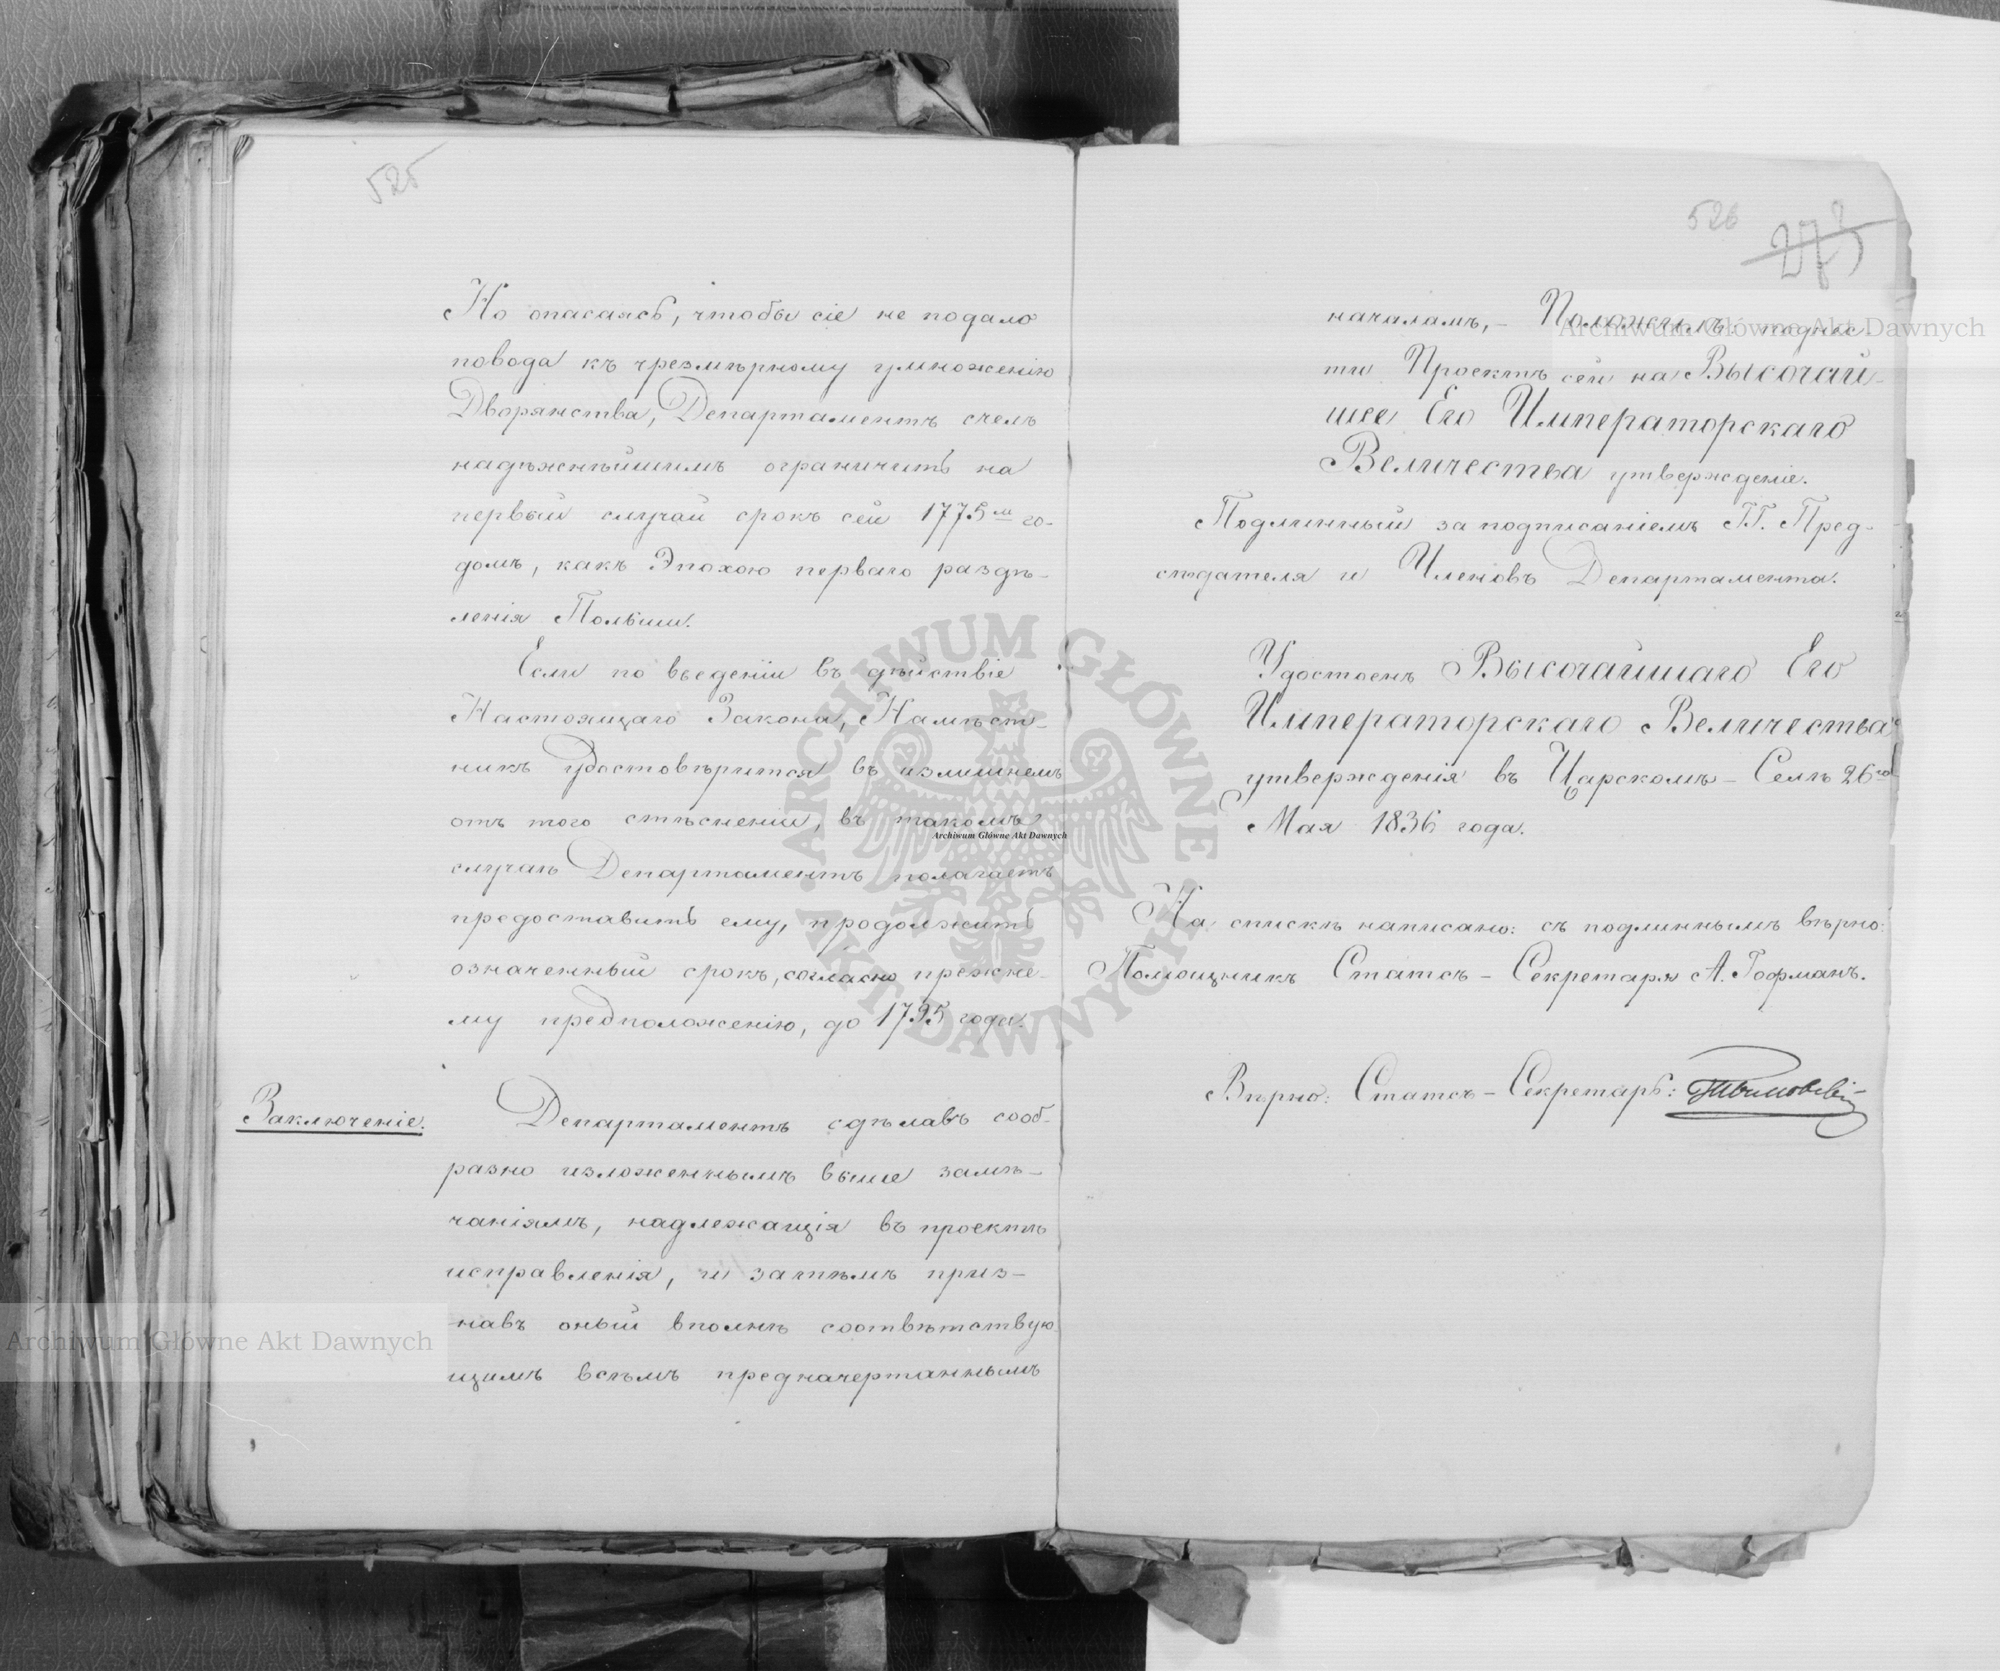 525
Но опасаясь, чтобы сіе не подало
повода къ чрезмѣрному умноженію
Дворянства, Департаментъ счелъ
надѣжнѣйшимъ ограничить на
первый случай срокъ сей 1775м го-
домъ, какъ Эпохою перваго раздѣ-
ленія Польши.
Если по введеніи въ дѣйствіе
Настоящаго Закона, Намѣст-
никъ удостовѣрится въ излишнемъ
отъ того стѣсненіи, въ такомъ
случаѣ Департаментъ полагаетъ
предоставить ему, продолжить
означенный срокъ, согласно прежне-
му предположенію, до 1795 года.
Заключеніе.
Департаментъ сдѣлавъ сооб-
разно изложеннымъ выше замѣ-
чаніямъ, надлежащія въ проектѣ
исправленія, и затѣмъ приз-
навъ оный вполнѣ соотвѣтствую
щимъ всѣмъ предначертаннымъ
526
273
началамъ, – Положилъ: поднес
ти Проектъ сей на Высочай-
шее Его Императорскаго
Величества утвержденіе.
Подлинный за подписаніемъ ГГ. Пред-
сѣдателя и Членовъ Департамента.
Удостоенъ Высочайшаго Его
Императорскаго Величества
утвержденія въ Царскомъ – Селѣ 26го
Мая 1836 года.
На спискѣ написано: съ подлиннымъ вѣрно:
Помощникъ Статсъ – Секретаря А. Гофманъ.
Вѣрно: Статсъ – Секретарь:
Archiwum Główne Akt Dawnych
Archiwum Główne Akt Dawnych
Archiwum Główne Akt Dawnych
ARCHIWUM GŁÓWNE AKT DAWNYCH